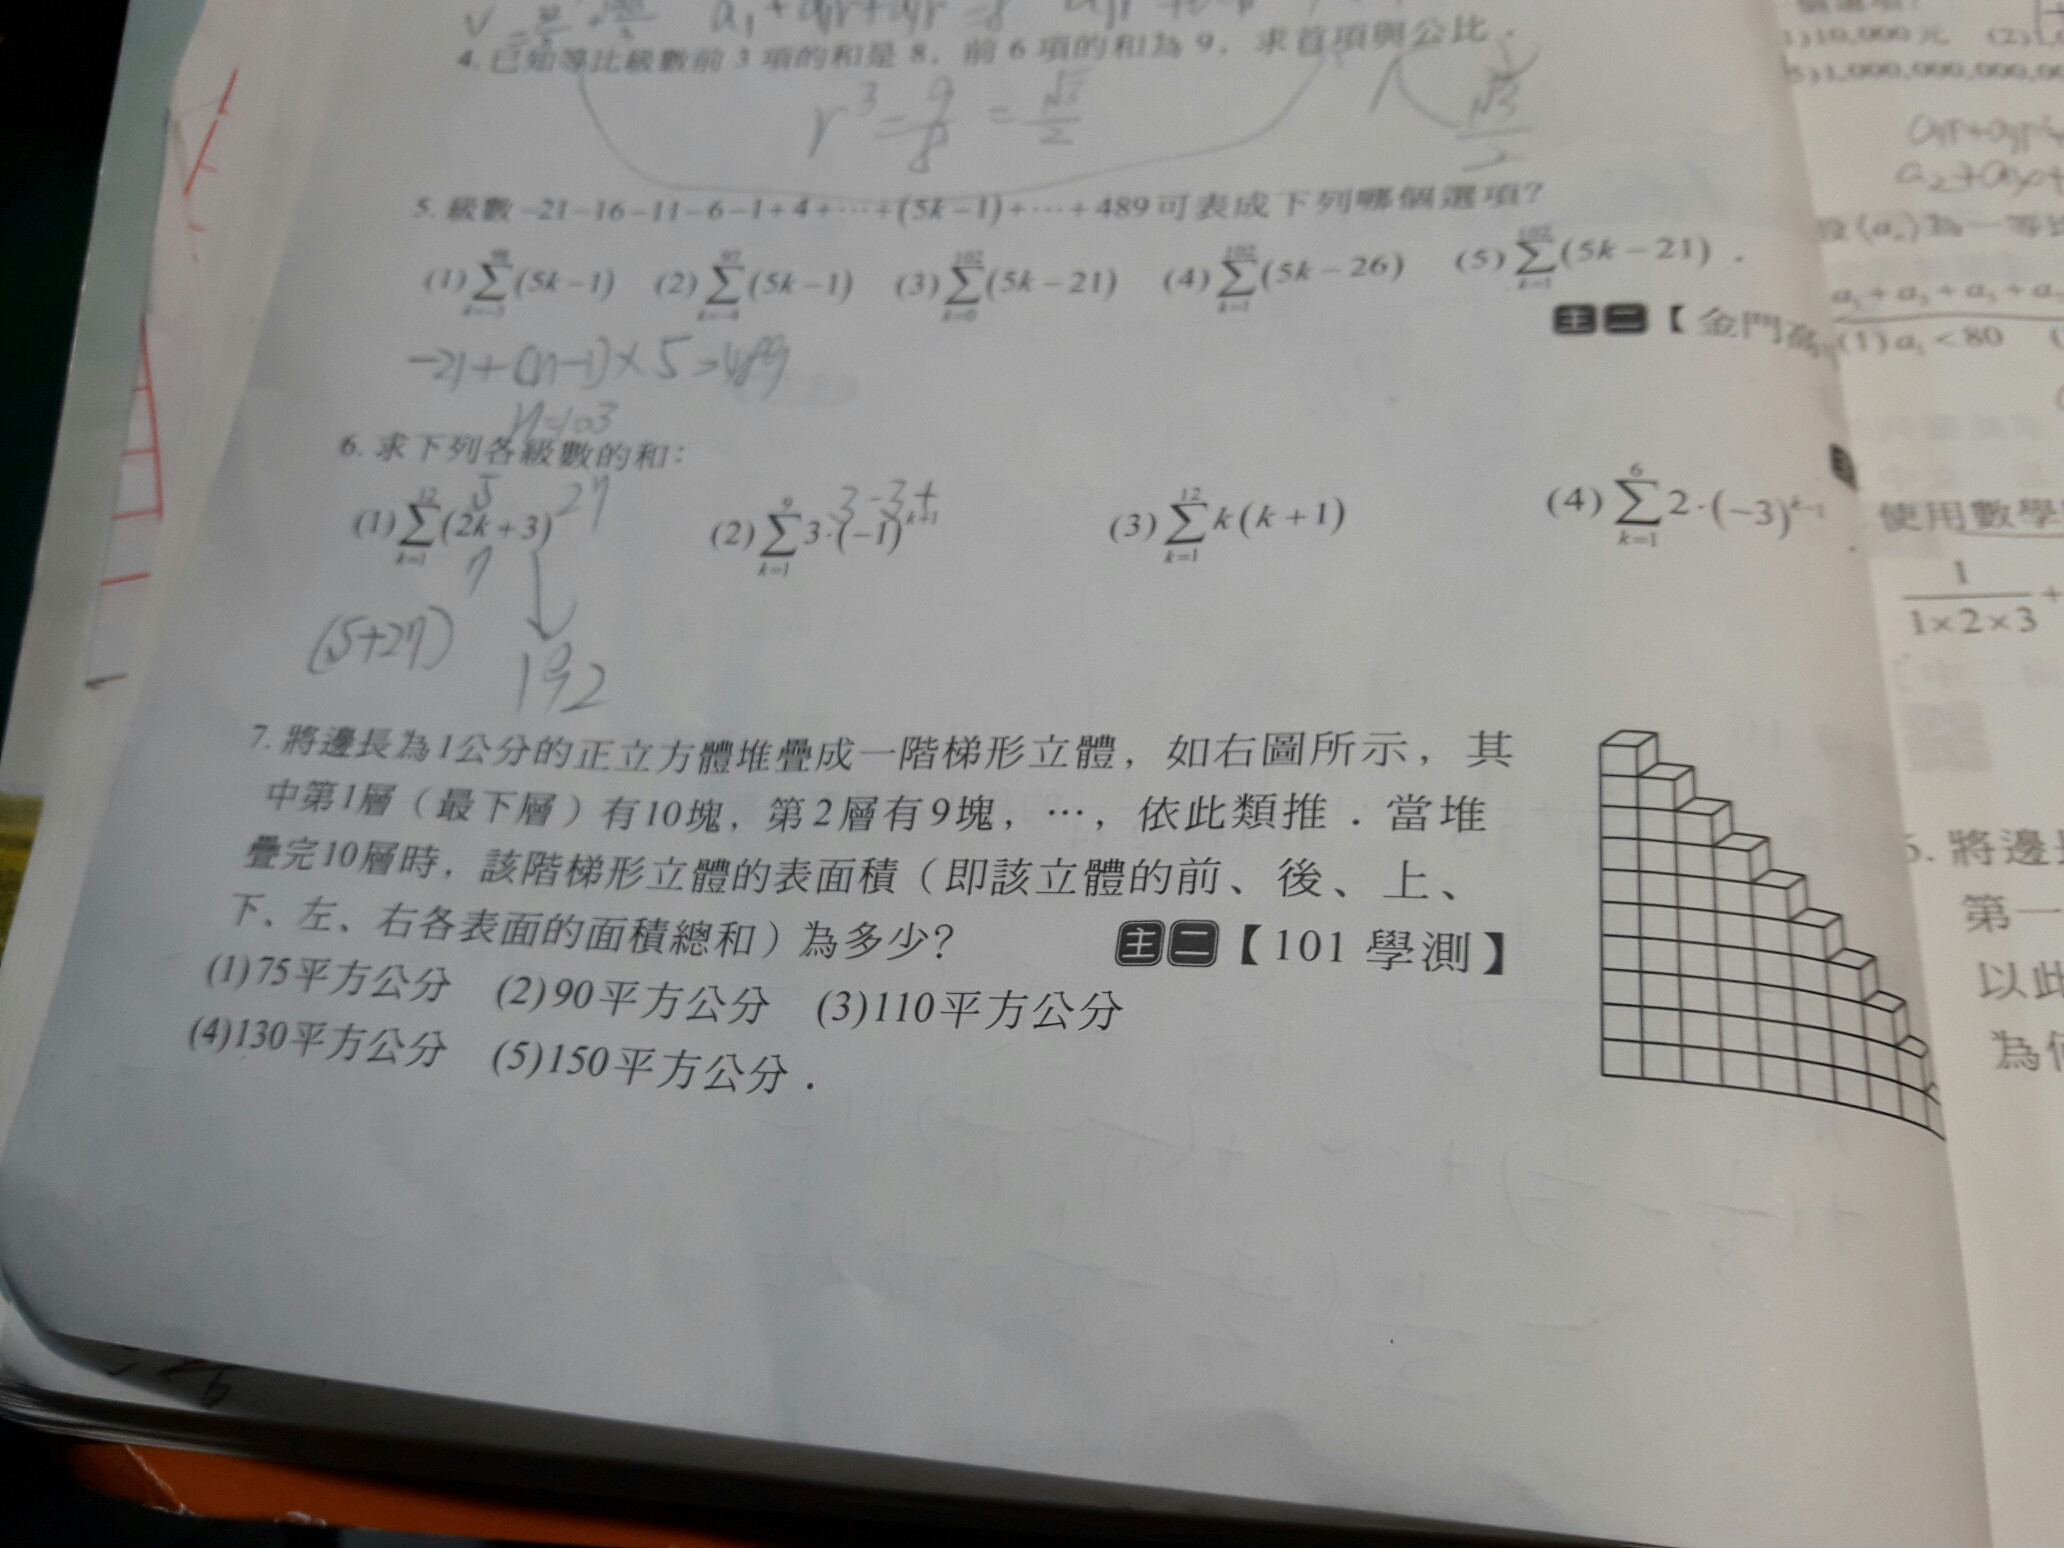 4. 已知等比級數前 3 項的和是 8，前 6 項的和為 9，求首項與公比．
r³ = 9/8 = √3/2
√3/2
5. 級數 -21-16-11-6-1+4+⋯+(5k-1)+⋯+489 可表成下列哪個選項？
(1) ∑(5k-1) (2) ∑_{k=-4}^{97}(5k-1) (3) ∑_{k=0}^{102}(5k-21) (4) ∑_{k=1}^{102}(5k-26) (5) ∑_{k=1}^{102}(5k-21)．
主 二【金門高
-21+(n-1)×5=489
n=103
6. 求下列各級數的和：
5 27
(1) ∑_{k=1}^{12}(2k+3) (2) ∑_{k=1}^{9}3·(-1)^{k+1} (3) ∑_{k=1}^{12}k(k+1) (4) ∑_{k=1}^{6}2·(-3)^{k-1}
(5+27)
192
7. 將邊長為1公分的正立方體堆疊成一階梯形立體，如右圖所示，其
中第1層（最下層）有10塊，第2層有9塊，⋯，依此類推．當堆
疊完10層時，該階梯形立體的表面積（即該立體的前、後、上、
下、左、右各表面的面積總和）為多少？ 主 二【101 學測】
(1)75平方公分 (2)90平方公分 (3)110平方公分
(4)130平方公分 (5)150平方公分．
1)10,000元 (2)
5)1,000,000,000,0
(1) a₁<80
使用數學
1/(1×2×3) +
將邊
第一
以此
為何